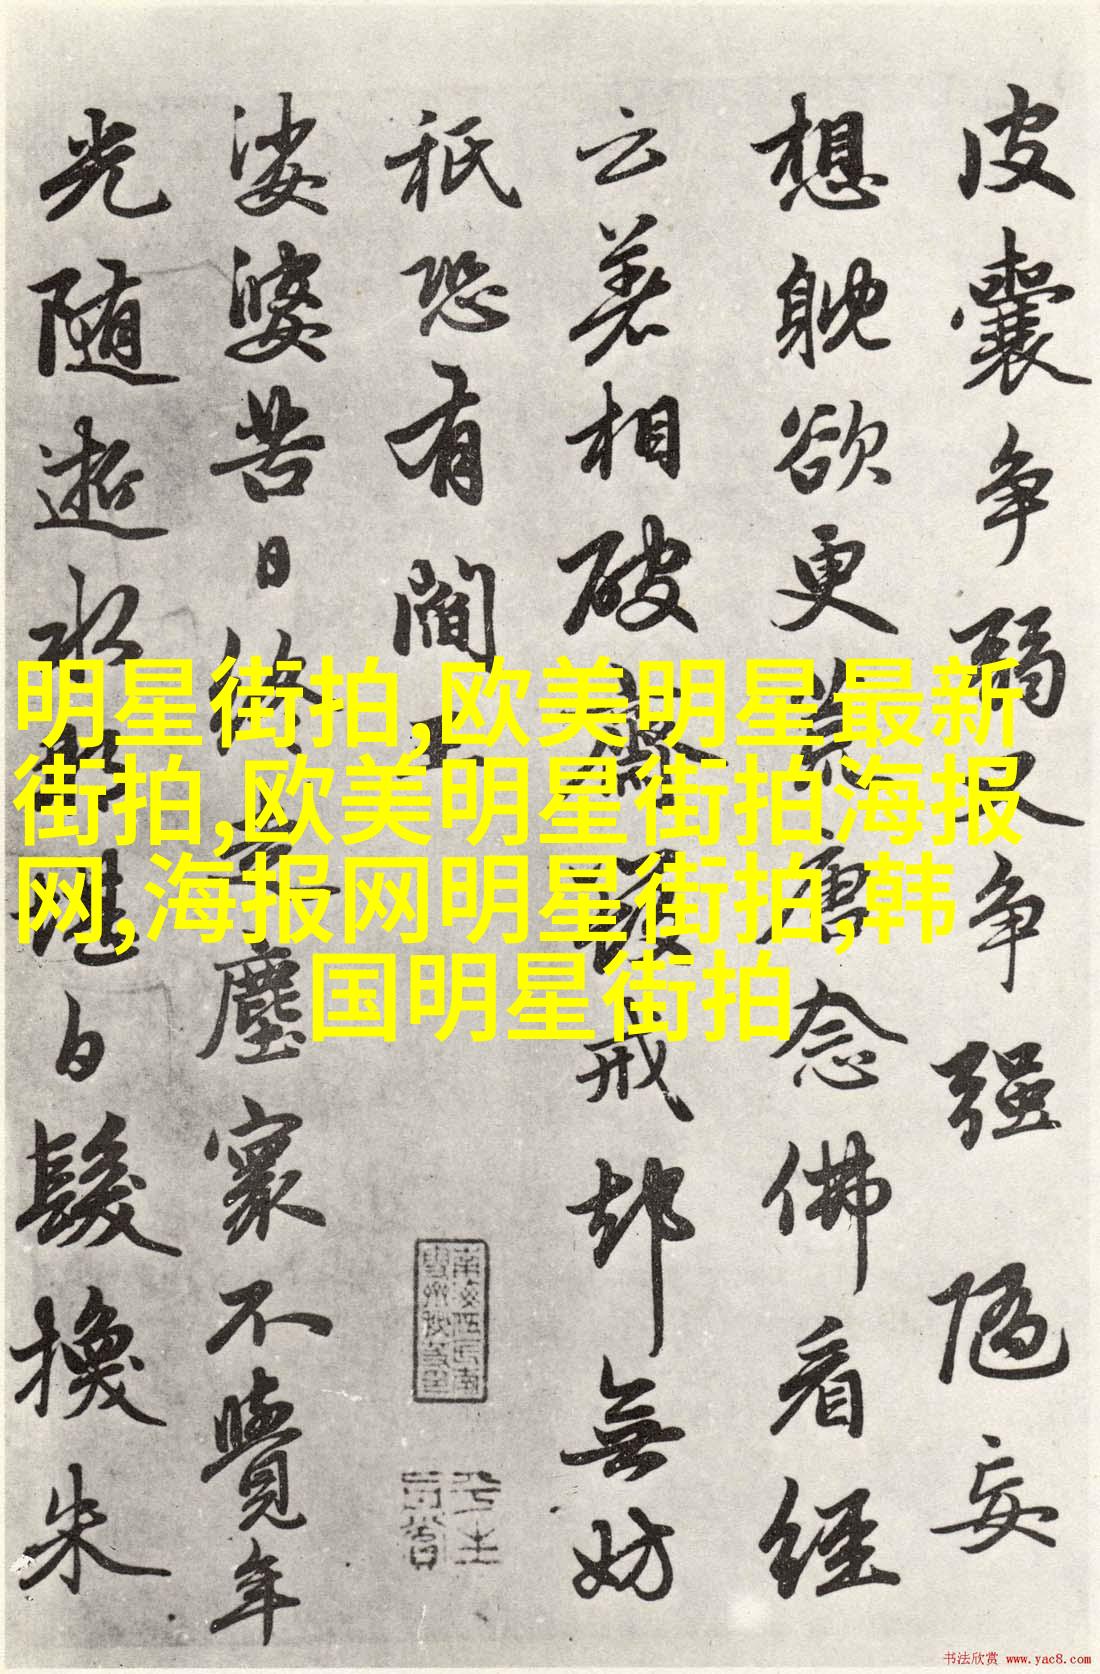 皮囊争弱又争强 随妄
想躭欲更荒唐念佛看经
云著相破齋毁戒却無妨
祇恐有閻王
娑婆苦日終塵寰不覺年
光随逝水堪白髮換朱
明星街拍,欧美明星最新
街拍,欧美明星街拍海报
网,海报网明星街拍,韩
国明星街拍
书法欣赏 www.yac8.com